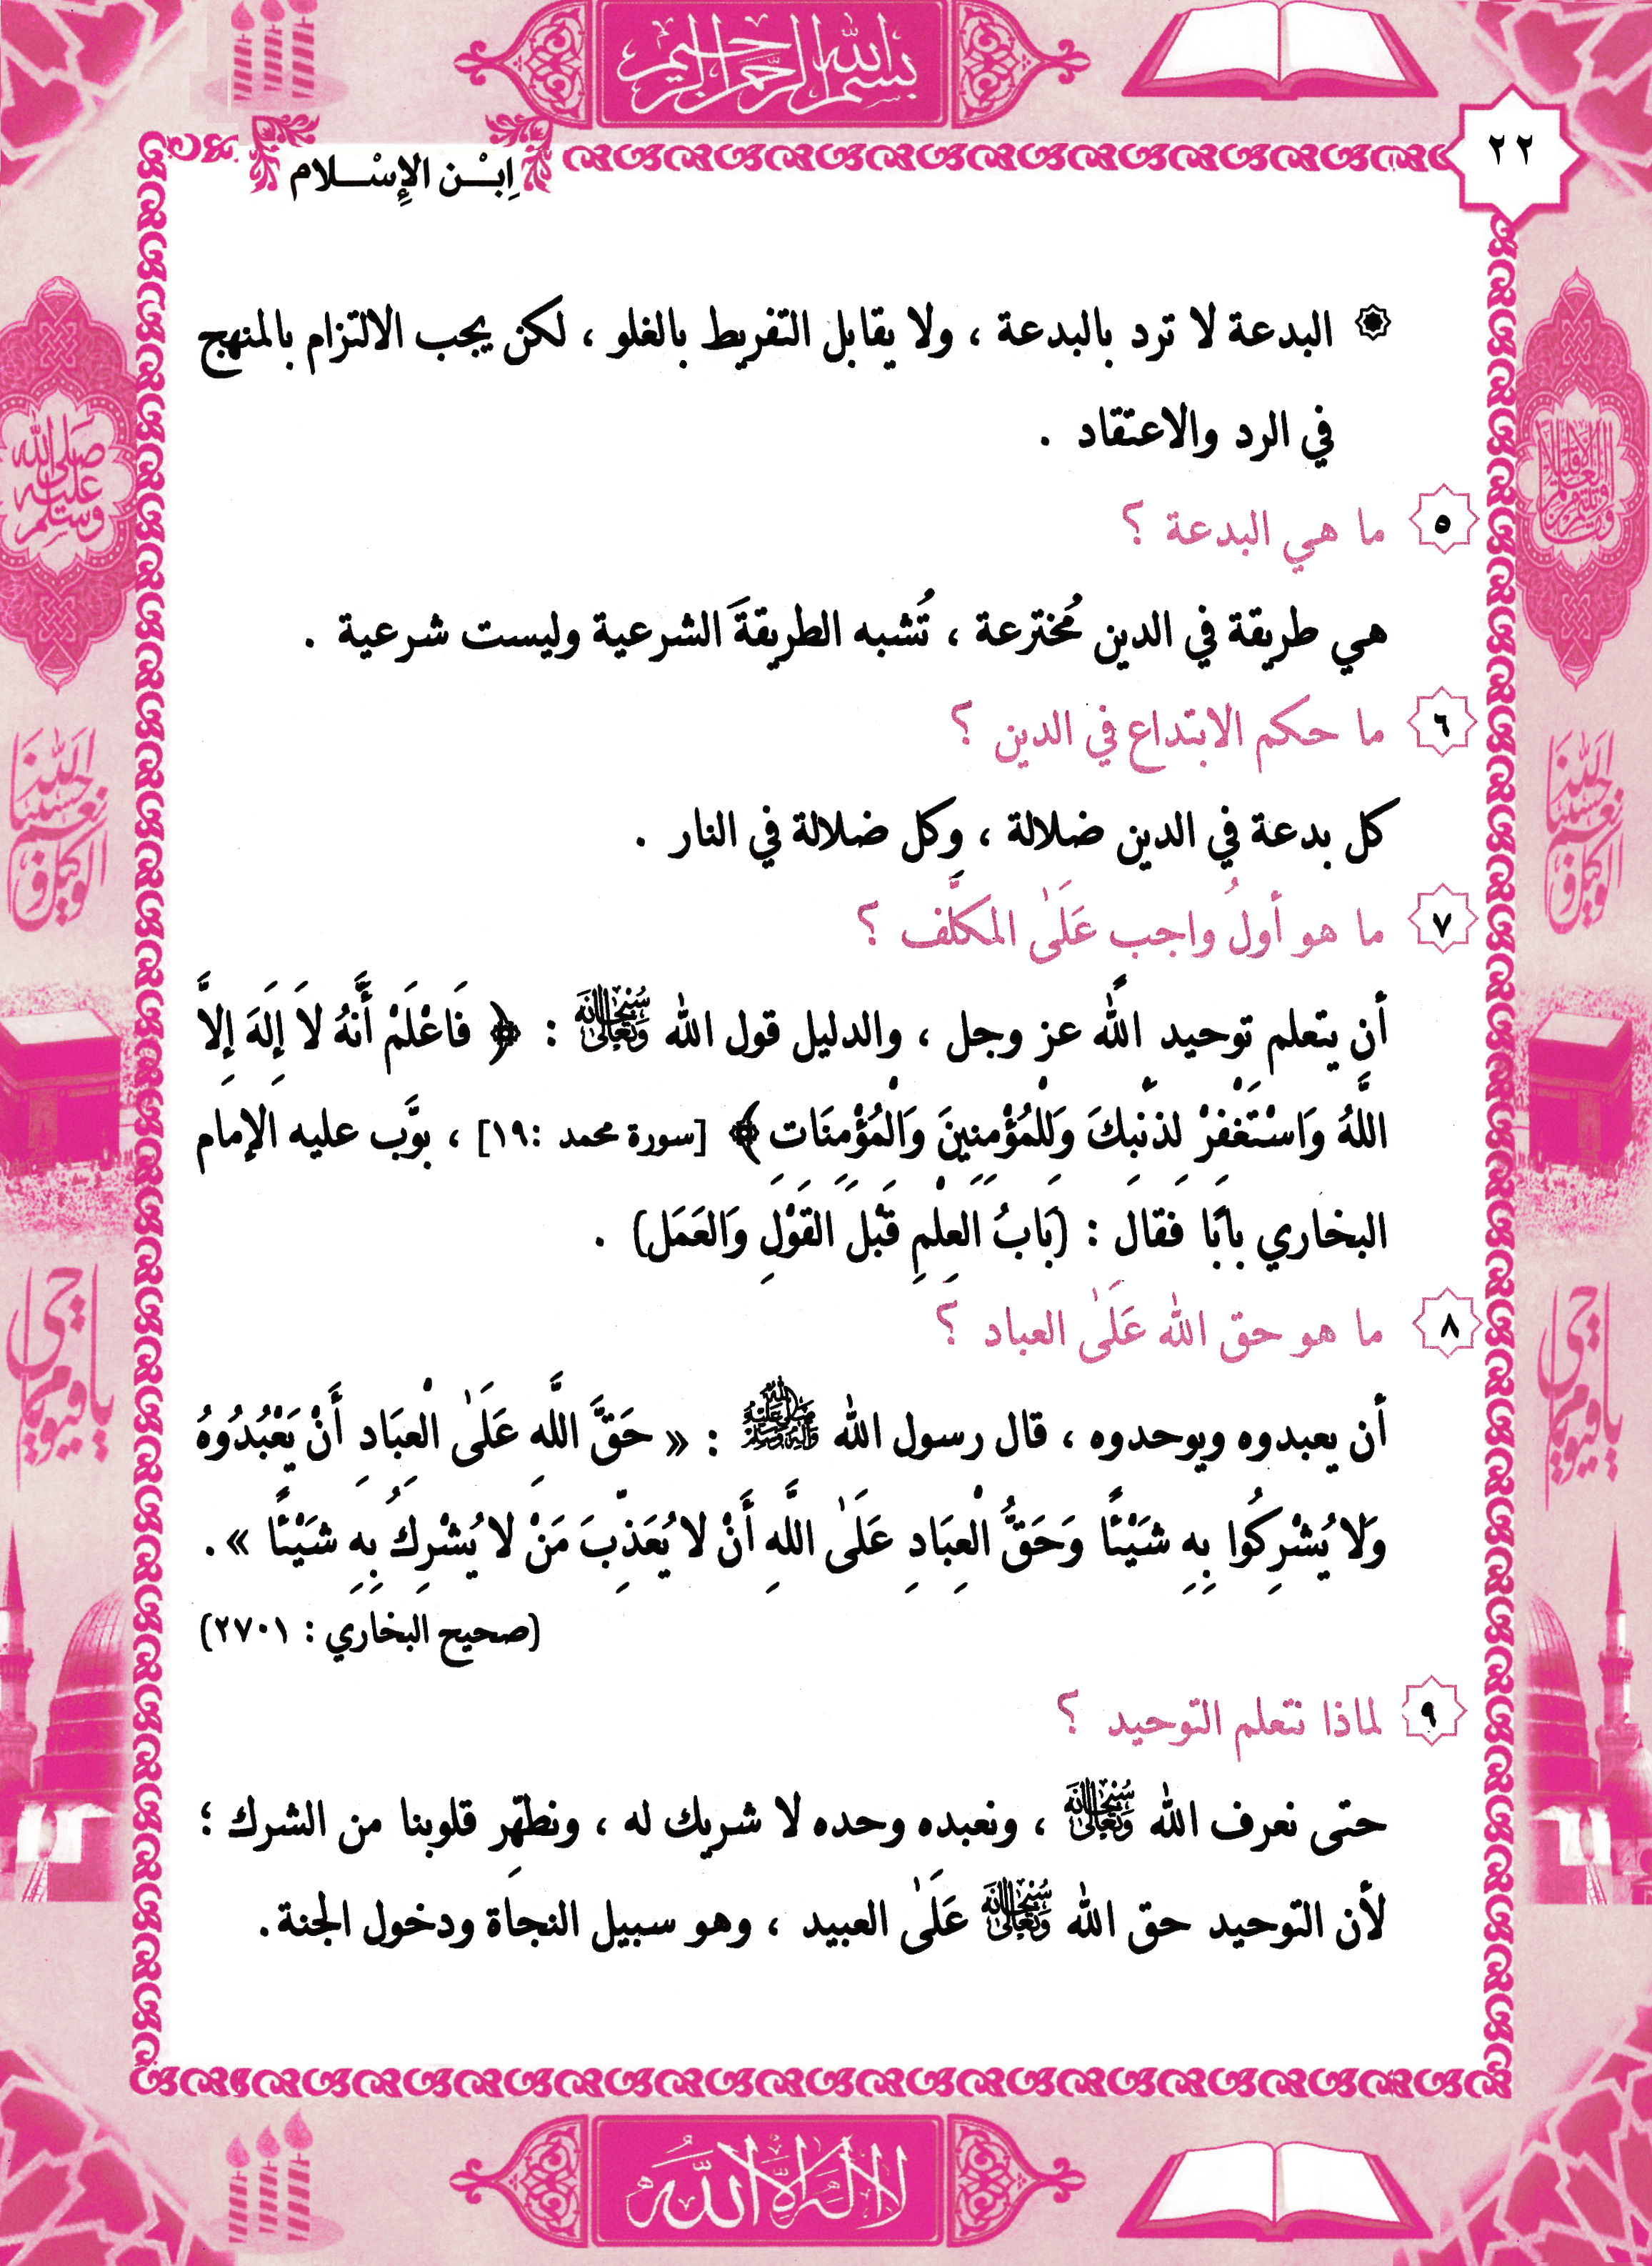 بسم الله الرحمن الرحيم
٢٢
اِبْن الإِسْلام
البدعة لا ترد بالبدعة ، ولا يقابل التفريط بالغلو ، لكن يجب الالتزام بالمنهج
في الرد والاعتقاد .
٥ ما هي البدعة ؟
هي طريقة في الدين مُخترعة ، تُشبه الطريقةَ الشرعية وليست شرعية .
٦ ما حكم الابتداع في الدين ؟
كل بدعة في الدين ضلالة ، وكل ضلالة في النار .
٧ ما هو أولُ واجب عَلَىٰ المكلَّف ؟
أن يتعلم توحيد اللَّه عز وجل ، والدليل قول الله سُبْحَانَهُ وَتَعَالَىٰ : ﴿ فَاعْلَمْ أَنَّهُ لاَ إِلَهَ إِلاَّ
اللَّهُ وَاسْتَغْفِرْ لِذَنْبِكَ وَلِلْمُؤْمِنِينَ وَالْمُؤْمِنَاتِ ﴾ [سورة محمد :١٩] ، بوَّب عليه الإمام
البخاري بابًا فقال : (بَابُ العِلْمِ قَبْلَ القَوْلِ وَالعَمَل) .
٨ ما هو حق الله عَلَىٰ العباد ؟
أن يعبدوه ويوحدوه ، قال رسول الله ﷺ : « حَقَّ اللَّهِ عَلَىٰ الْعِبَادِ أَنْ يَعْبُدُوهُ
وَلا يُشْرِكُوا بِهِ شَيْئًا وَحَقُّ الْعِبَادِ عَلَىٰ اللَّهِ أَنْ لا يُعَذِّبَ مَنْ لا يُشْرِكُ بِهِ شَيْئًا » .
(صحيح البخاري : ٢٧٠١)
٩ لماذا نتعلم التوحيد ؟
حتى نعرف الله سُبْحَانَهُ وَتَعَالَىٰ ، ونعبده وحده لا شريك له ، ونطهِّر قلوبنا من الشرك ؛
لأن التوحيد حق الله سُبْحَانَهُ وَتَعَالَىٰ عَلَىٰ العبيد ، وهو سبيل النجاة ودخول الجنة.
لا إله إلا الله
صلى الله عليه وسلم
حسبنا الله ونعم الوكيل
حسبنا الله ونعم الوكيل
يا حي يا قيوم
يا حي يا قيوم